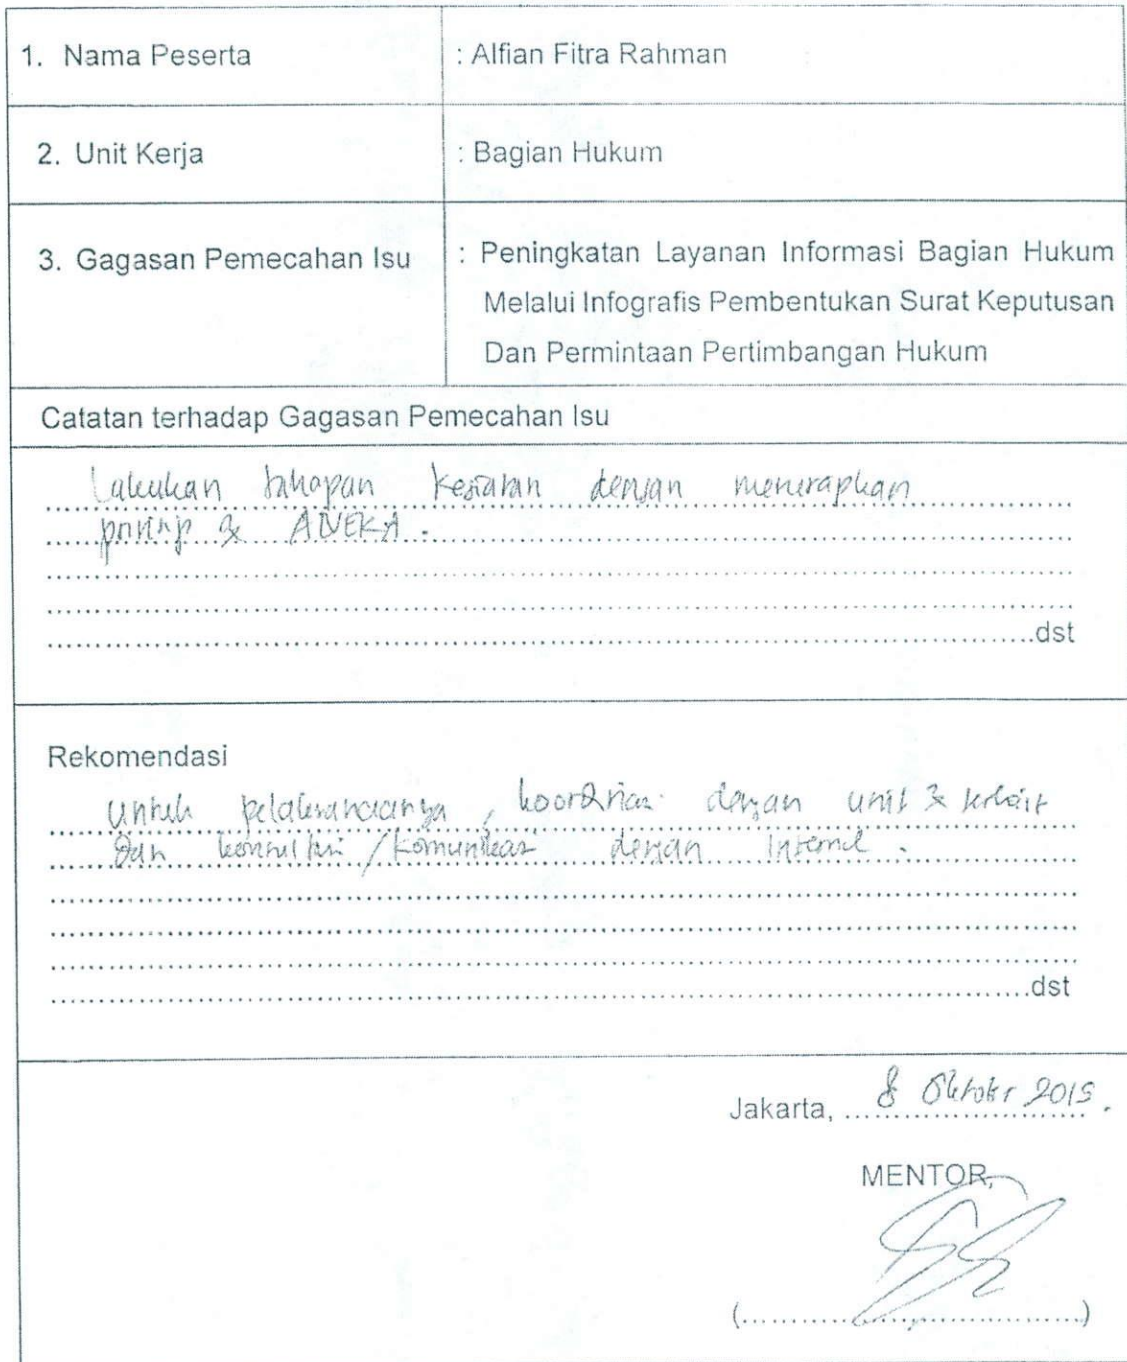 1. Nama Peserta : Alfian Fitra Rahman
2. Unit Kerja : Bagian Hukum
3. Gagasan Pemecahan Isu : Peningkatan Layanan Informasi Bagian Hukum
Melalui Infografis Pembentukan Surat Keputusan
Dan Permintaan Pertimbangan Hukum
Catatan terhadap Gagasan Pemecahan Isu
Lakukan tahapan kegiatan dengan menerapkan
prinsip ANEKA.
dst
Rekomendasi
untuk pelaksanaannya, dengan unit terkait
dan konsultasi/komunikasi dengan
dst
Jakarta, 8 Oktober
MENTOR,
(....................................)